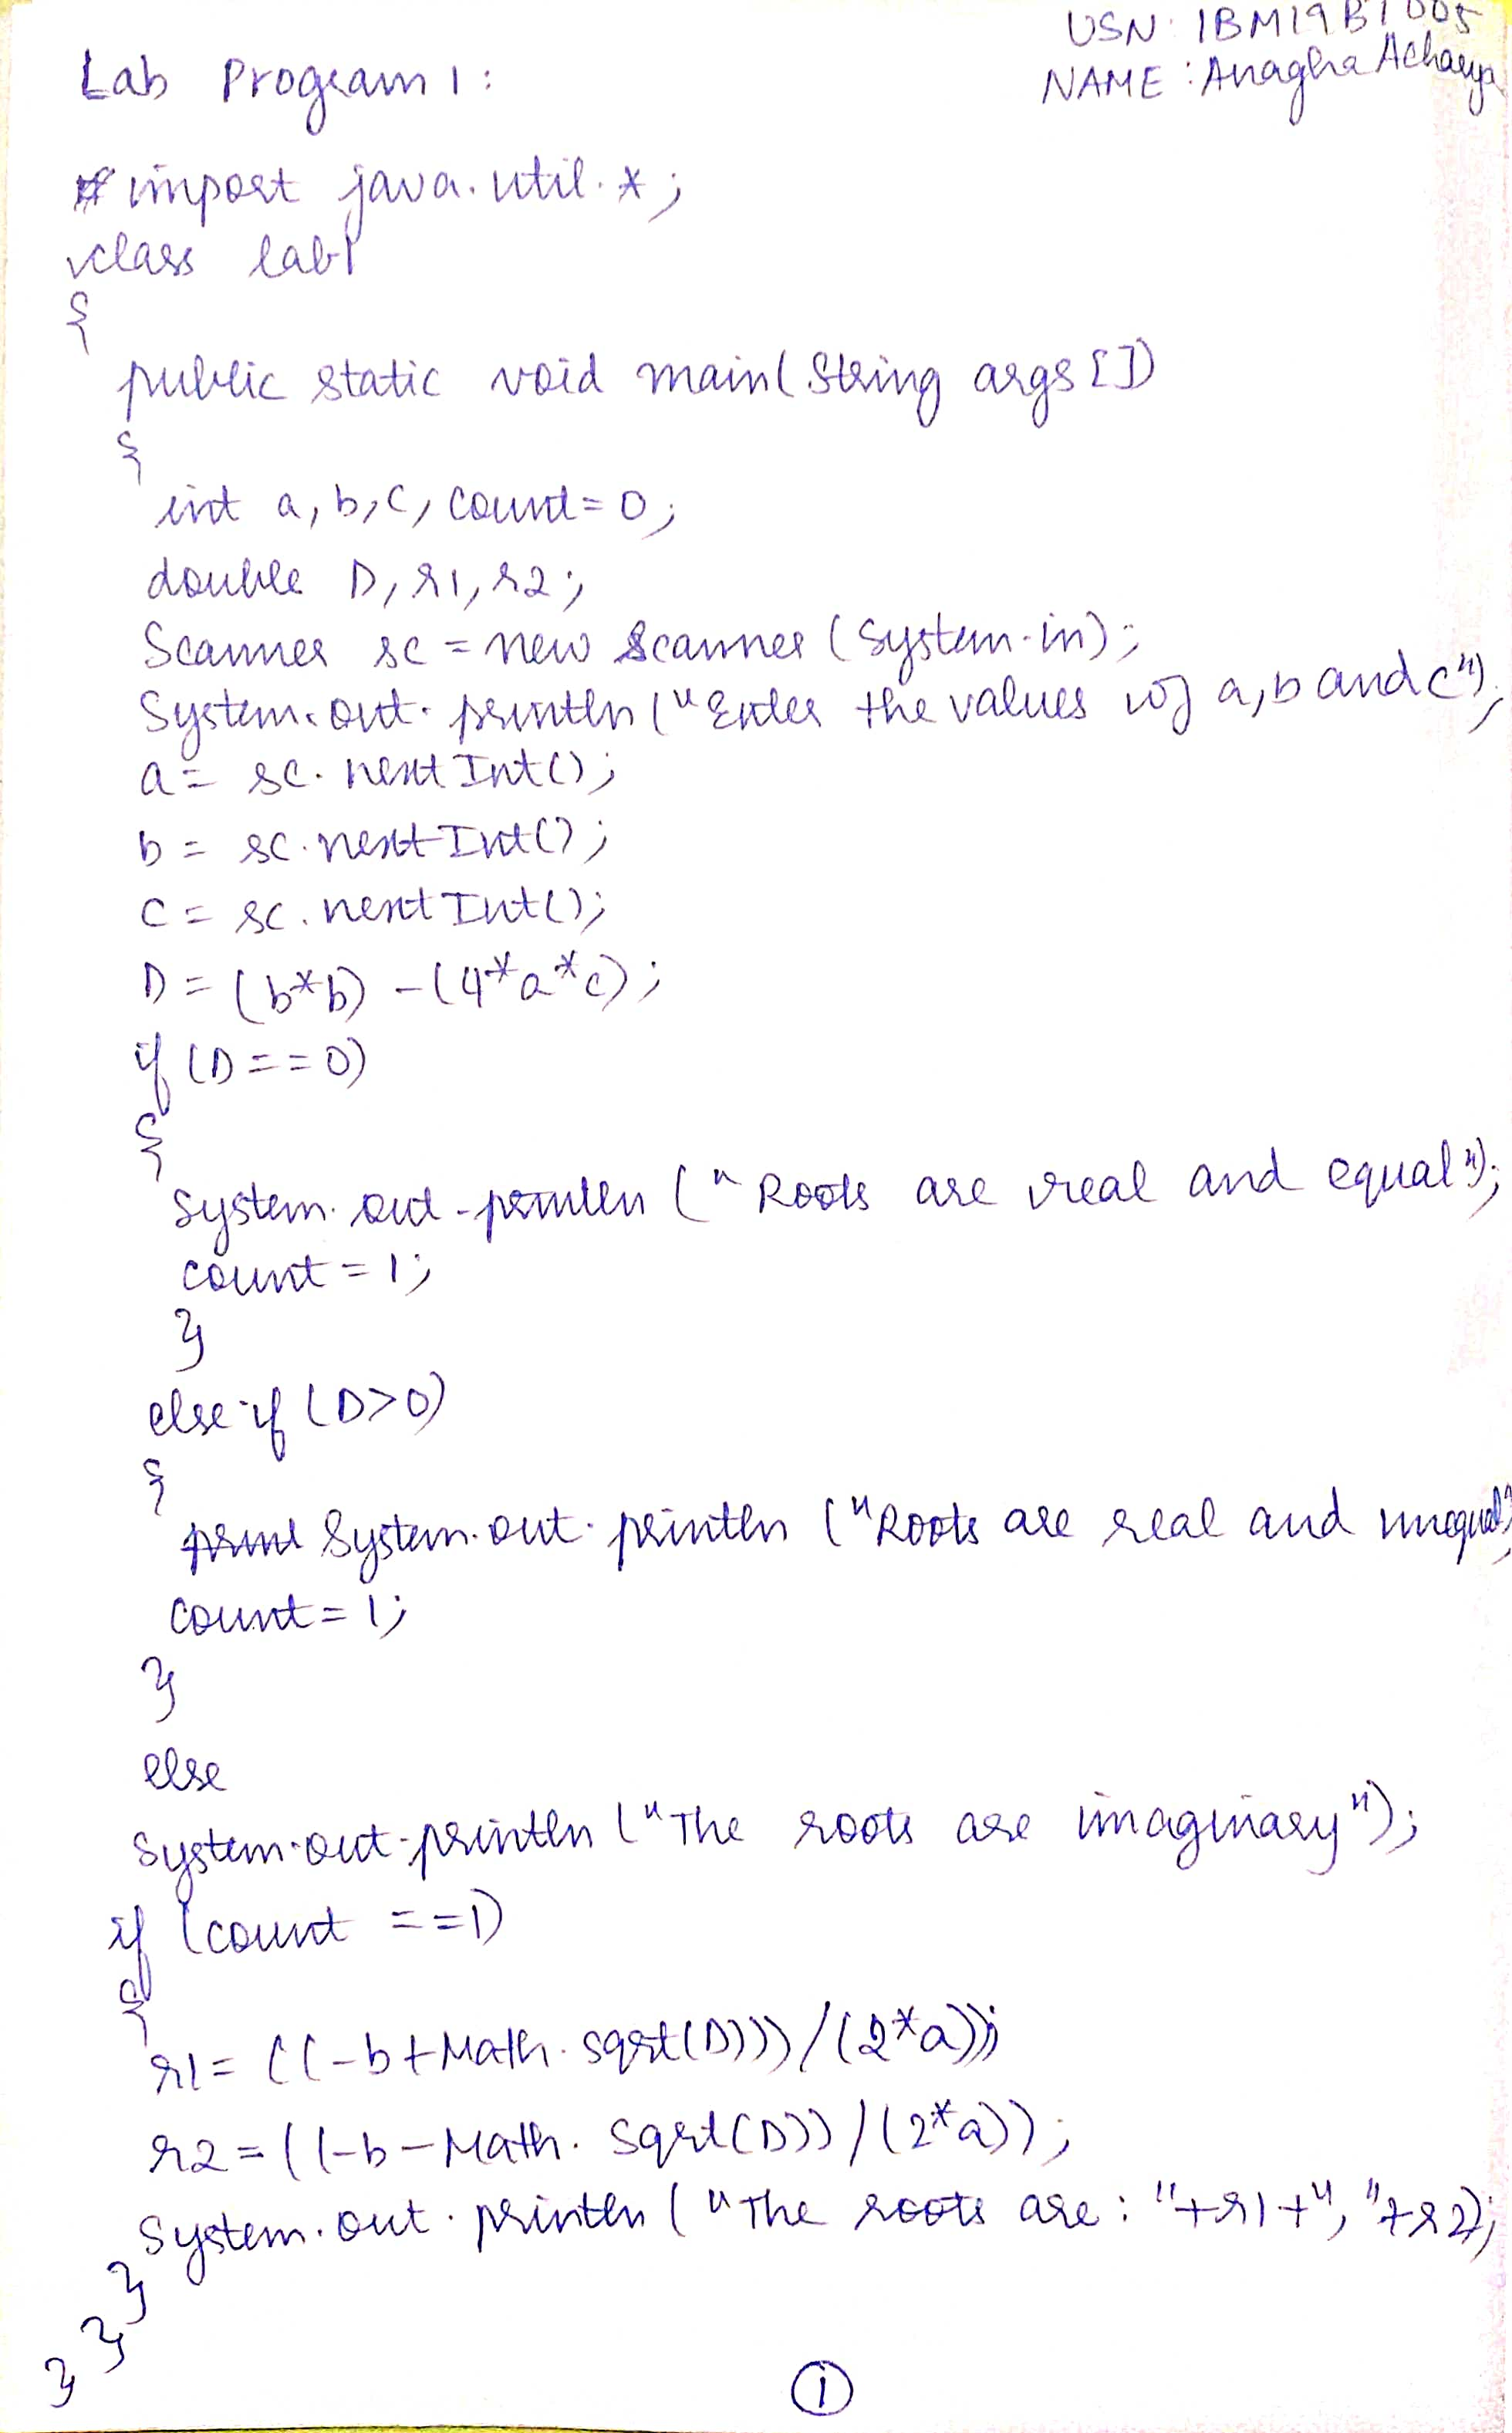 USN: 1BM19BT005
Lab Program 1:
NAME: Anagha Acharya
import java.util.*;
class lab1
{
public static void main(String args[])
{
int a, b, c, count=0;
double D, r1, r2;
Scanner sc = new Scanner (System.in);
System.out.println ("Enter the values of a, b and c");
a = sc.nextInt();
b = sc.nextInt();
c = sc.nextInt();
D = (b*b) - (4*a*c);
if (D==0)
{
System.out.println ("Roots are real and equal");
count = 1;
}
else if (D>0)
{
System.out.println ("Roots are real and unequal");
count = 1;
}
else
System.out.println ("The roots are imaginary");
if (count ==1)
{
r1= ((-b+Math.sqrt(D)))/(2*a));
r2 = ((-b-Math.sqrt(D))/(2*a));
System.out.println ("The roots are: "+r1+", "+r2);
}
}
}
1